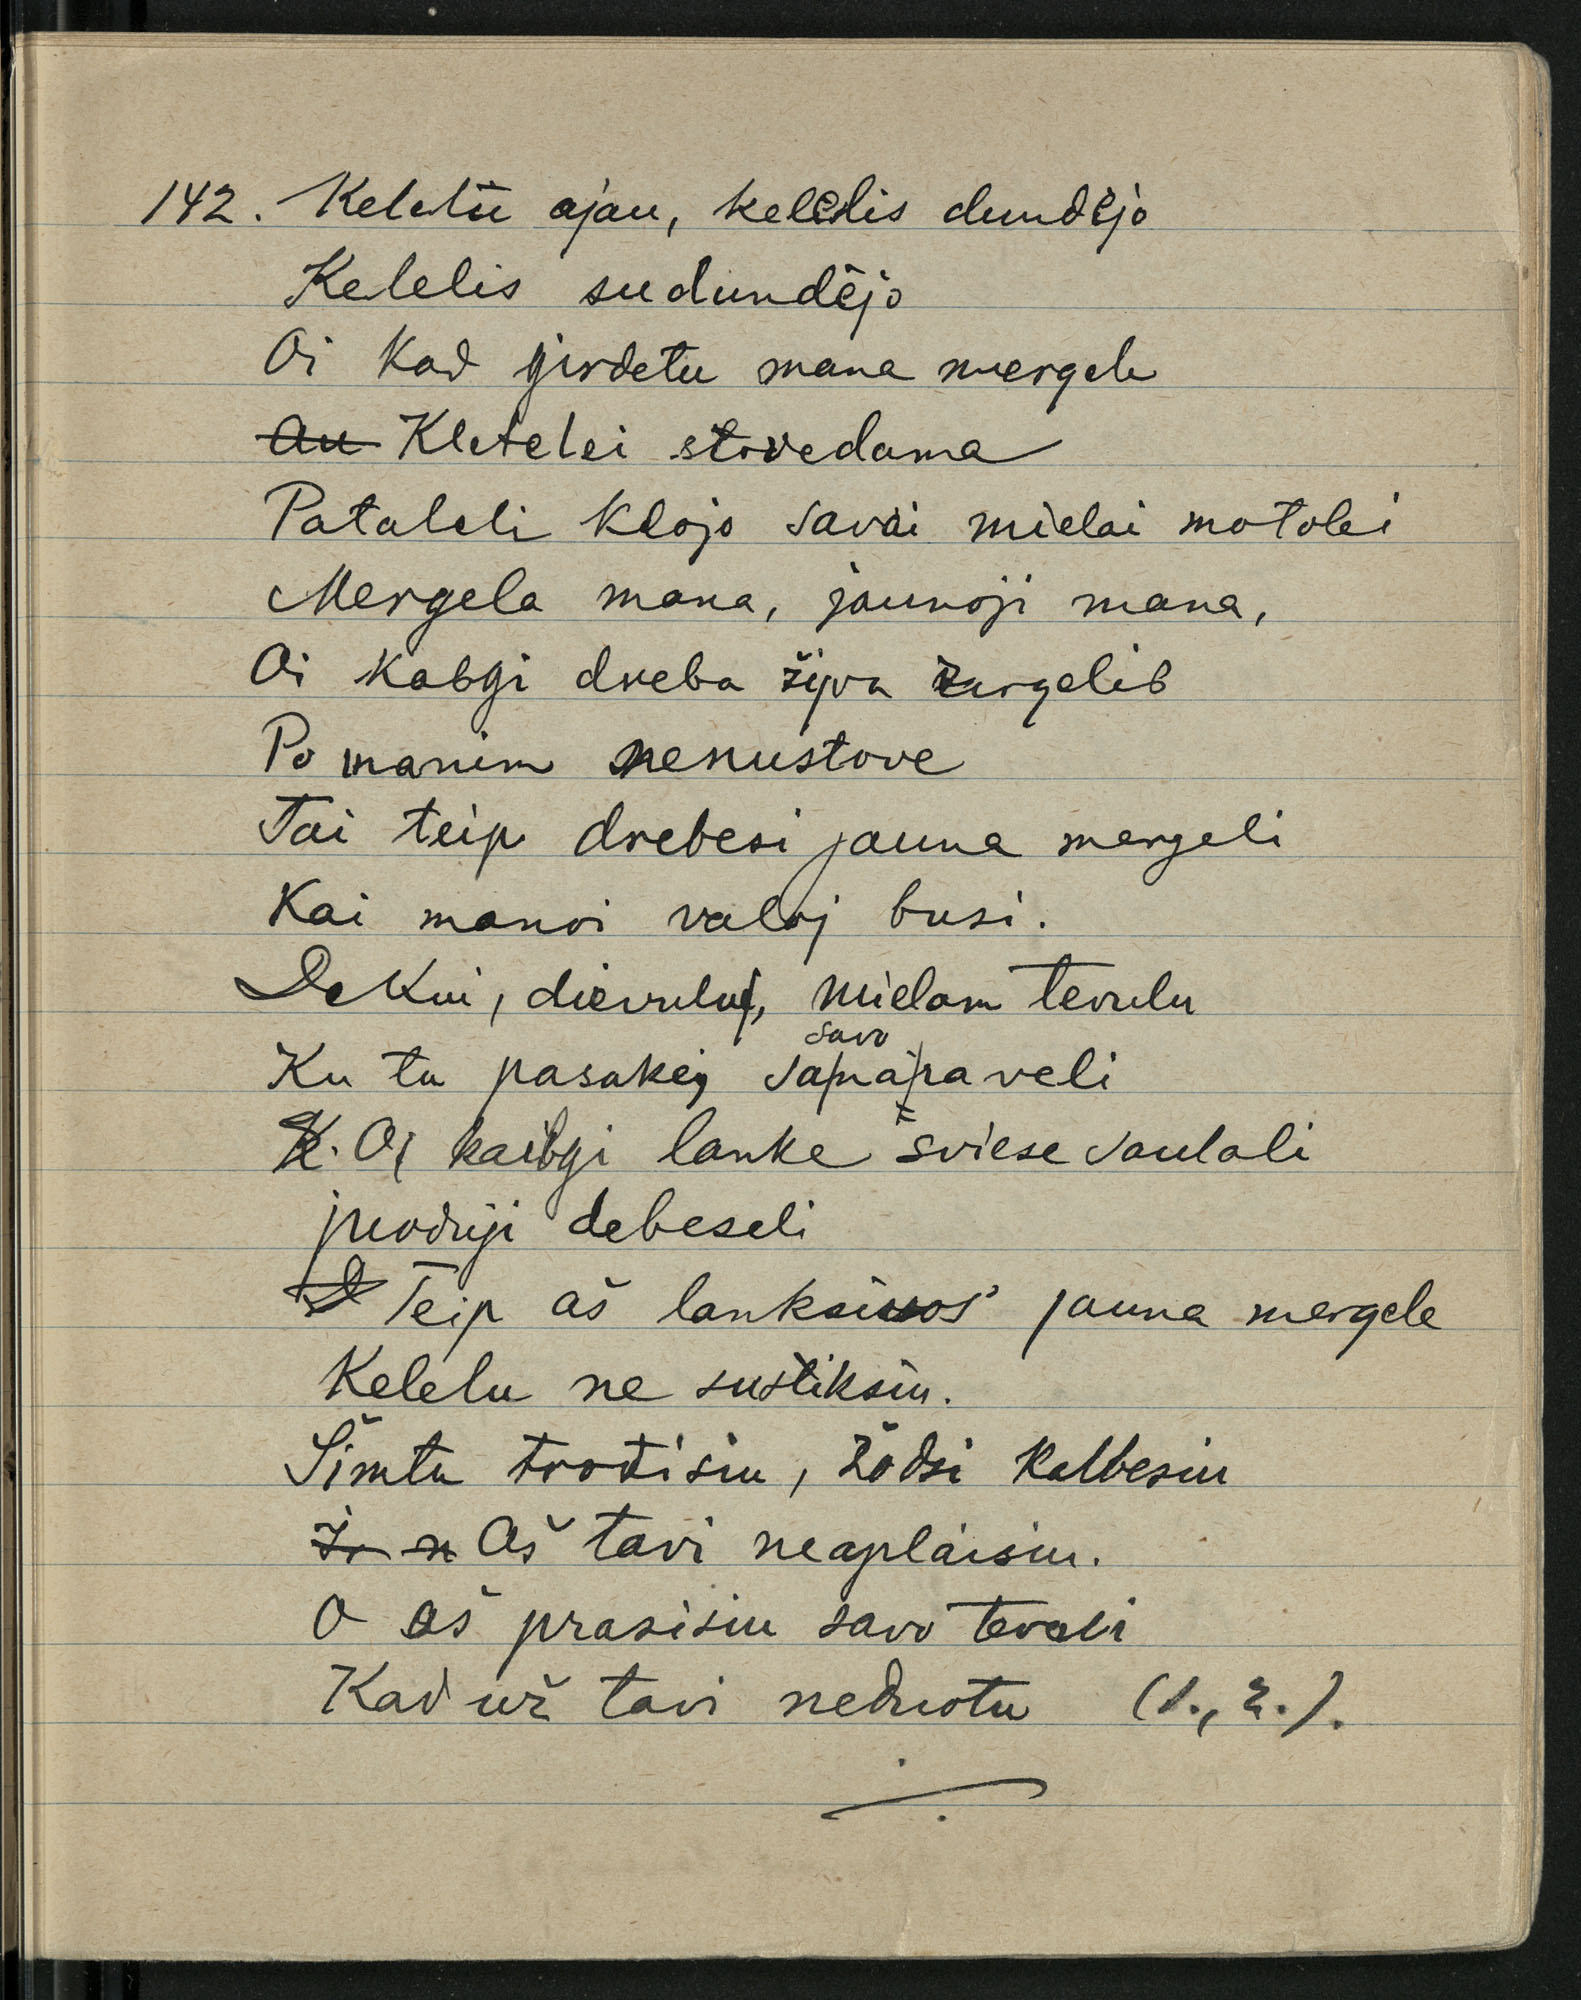 142. Kelelu ajau, kelelis dundėjo
Kelelis sudundėjo
Oi Kad girdetu mana mergele
au Kletelei stovedama
Pataleli klojo savai mielai motolei
Mergela mana, jaunoji mana,
Oi kabgi dreba žirgelis
Po manim nenustove
Tai teip drebesi jauna mergeli
Kai manoi valoj busi.
Dekui, dievulu, mielam tevulu
savo
Ku tu pasakei raveli
K. Oi kaibgi lanke šviese saulali
juodiji debeseli
D Teip aš lanksiuos jauna mergele
Kelelu ne sustiksiu.
Šimtu trotisiu, žodsi kalbesiu
Ir n Aš tavi neaplaisiu.
O aš prasisiu savo teveli
Kad už tavi neduotu (1., 2.).